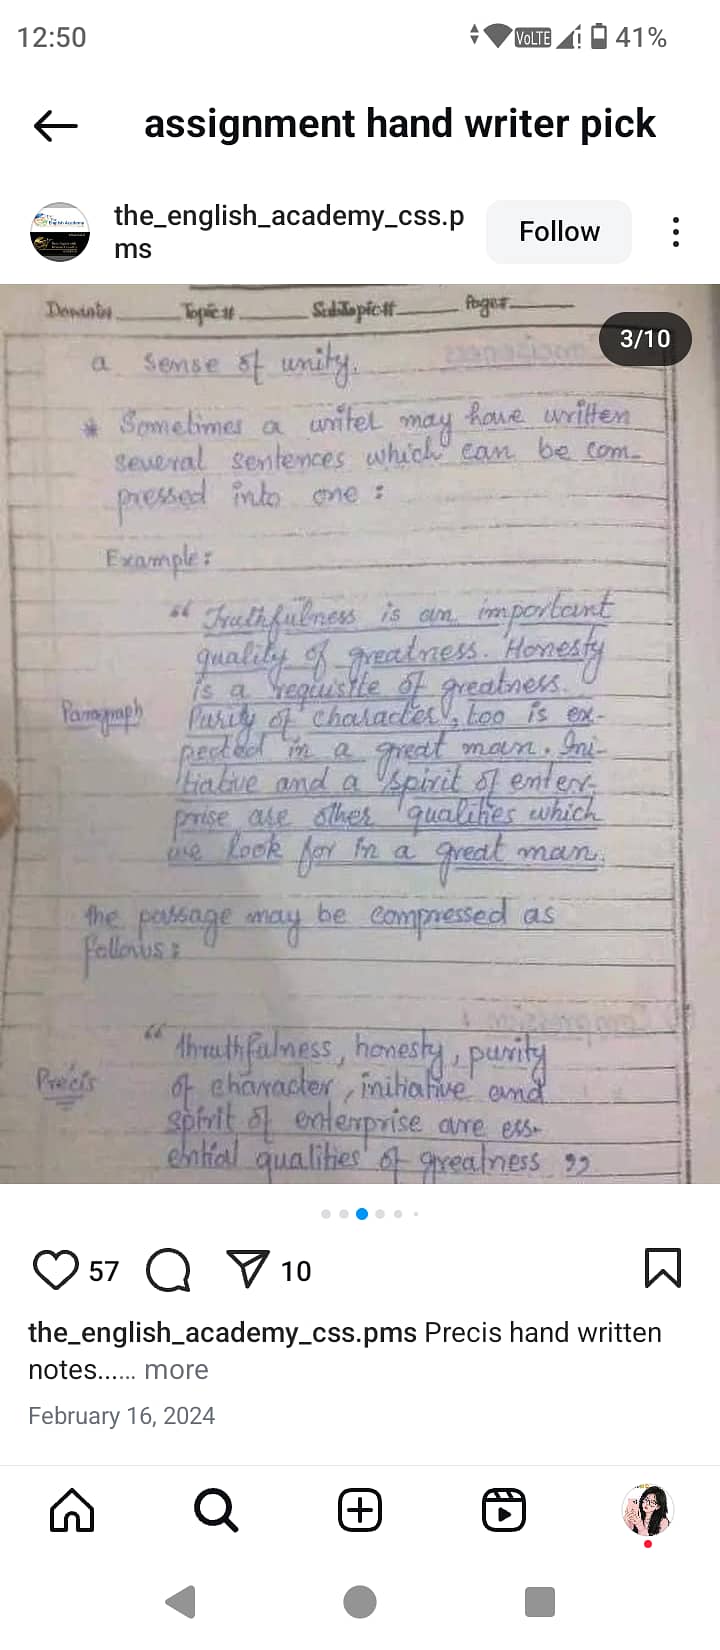 12:50
VoLTE
41%
assignment hand writer pick
the_english_academy_css.p
ms
Follow
Topic# SubTopic# Page#
3/10
a sense of unity.
* Sometimes a writer may have written
several sentences which can be com-
pressed into one :
Example :
“ Truthfulness is an important
quality of greatness. Honesty
is a requisite of greatness.
Paragraph Purity of character, too is ex-
pected in a great man. Ini-
tiative and a spirit of enter-
prise are other qualities which
we look for in a great man.
the passage may be compressed as
follows :
“ thruthfulness, honesty, purity
Précis of character, initiative and
spirit of enterprise are ess-
ential qualities of greatness ”
57
10
the_english_academy_css.pms Precis hand written
notes...... more
February 16, 2024